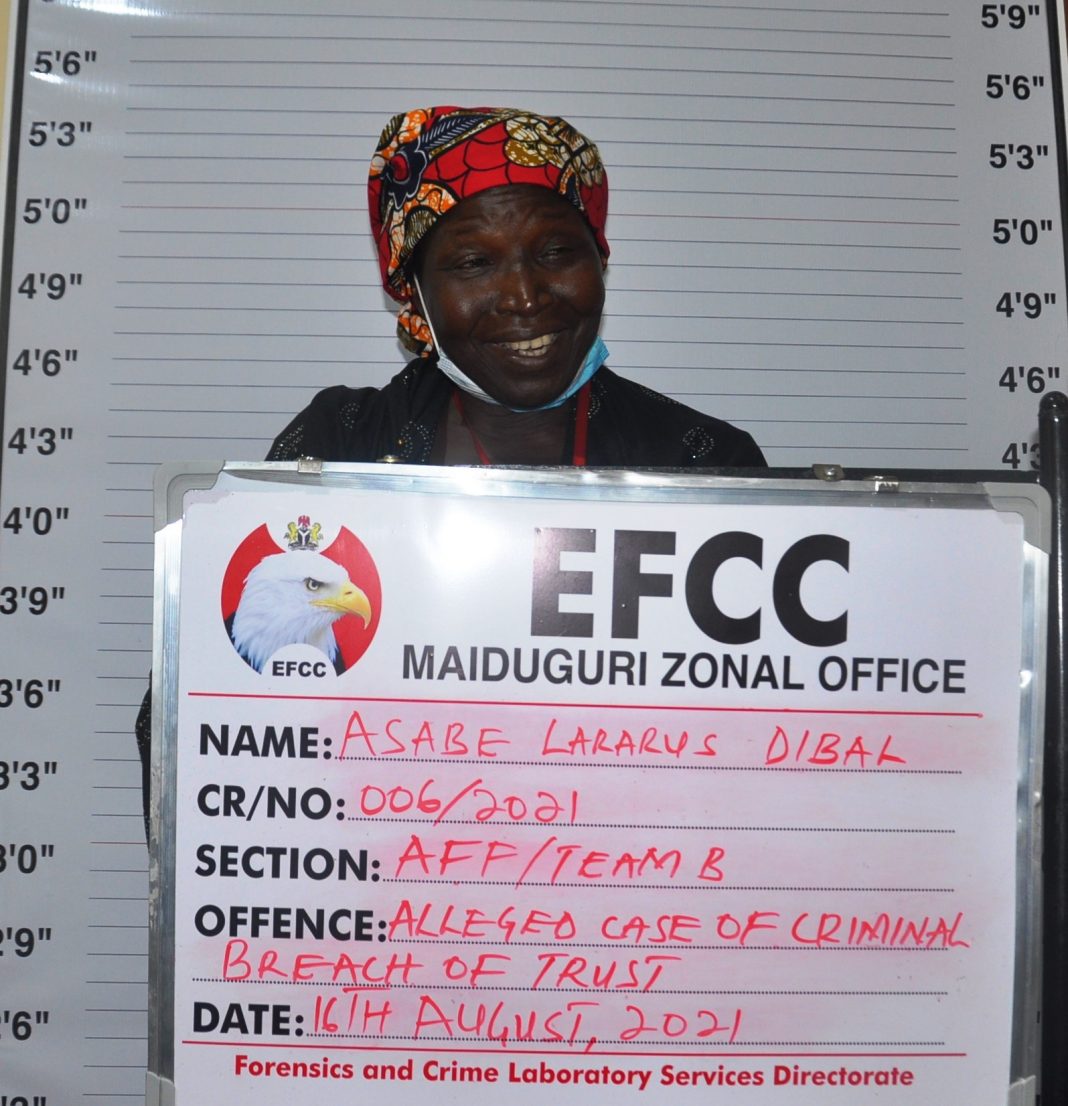 5'9"
5'6"
5'6"
5'3"
5'3"
5'0"
5'0"
4'9"
4'9"
4'6"
4'6"
4'3"
4'3
4'0"
3'9"
3'6"
3'3"
3'0"
2'9"
'6"
EFCC
EFCC
MAIDUGURI ZONAL OFFICE
NAME: ASABE LARARUS DIBAL
CR/NO: 006/2021
SECTION: AFF/TEAM B
OFFENCE: ALLEGED CASE OF CRIMINAL
BREACH OF TRUST
DATE: 16TH AUGUST, 2021
Forensics and Crime Laboratory Services Directorate